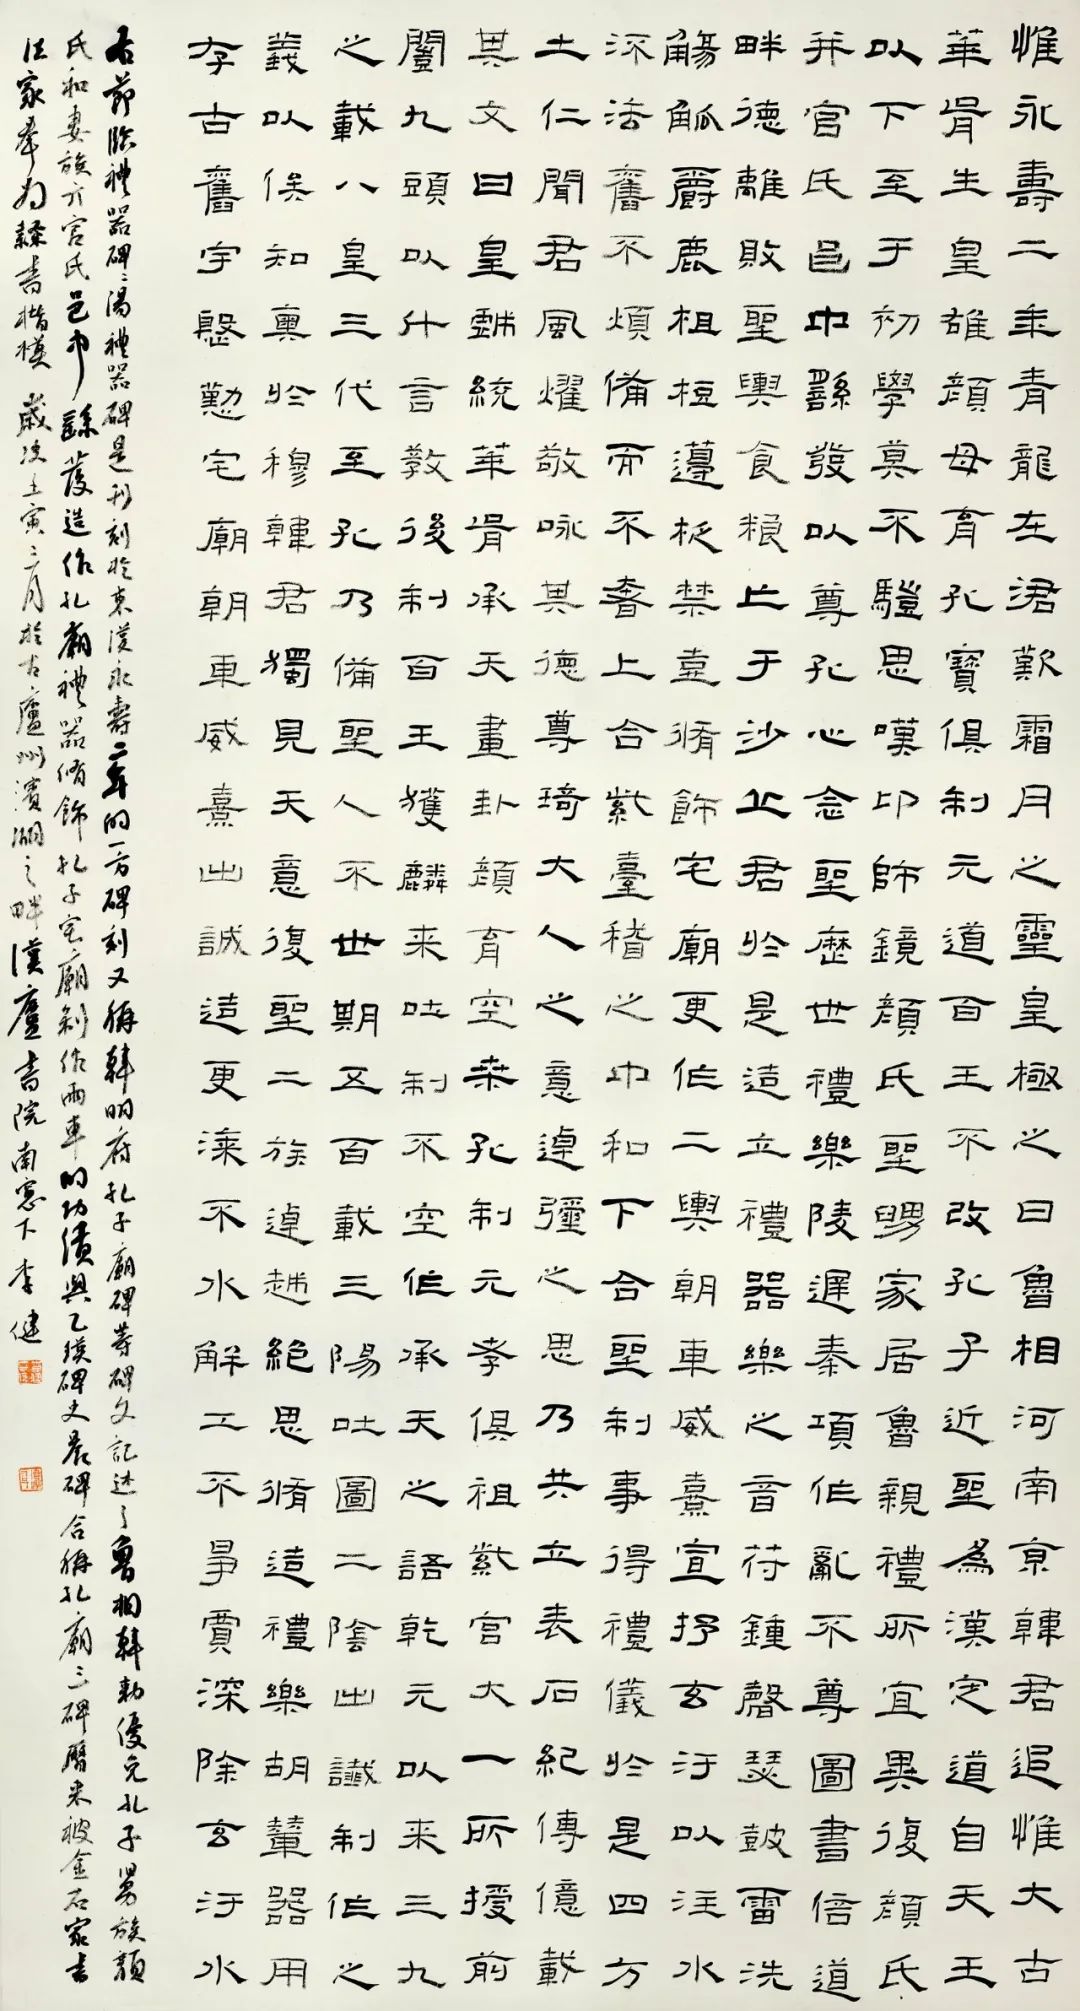 惟永壽二年青龍在涒歎霜月之靈皇極之日魯相河南京韓君追惟大古
華胥生皇雄顏母育孔寶俱制元道百王不改孔子近聖為漢定道自天王
以下至于初學莫不驥思嘆卬師鏡顏氏聖舅家居魯親禮所宜異復顏氏
并官氏邑中繇發以尊孔心念聖歷世禮樂陵遲秦項作亂不尊圖書倍道
畔德離敗聖輿食粮亡于沙丘君於是造立禮器樂之音符鍾磬瑟鼓雷洗
觴觚爵鹿柤梪籩柉禁壺脩飾宅廟更作二輿朝車威熹宣抒玄汙以注水
流法舊不煩備而不奢上合紫臺稽之中和下合聖制事得禮儀於是四方
土仁聞君風燿敬咏其德尊琦大人之意逴彌之思乃共立表石紀傳億載
其文曰皇戲統華胥承天畫卦顏育空桑孔制元孝俱祖紫宮大一所授前
闓九頭以什言教後制百王獲麟來吐制不空作承天之語乾元以來三九
之載八皇三代至孔乃備聖人不世期五百載三陽吐圖二陰出讖制作之
義以俟知奧於穆韓君獨見天意復聖二族逴越絕思脩造禮樂胡輦器用
存古舊宇慇懃宅廟朝車威熹出誠造更漆不水解工不爭賈深除玄汙水
右節臨禮器碑之陽禮器碑是刊刻於東漢永壽二年的一方碑刻又稱韓明府孔子廟碑等碑文記述了魯相韓勅優免孔子舅族顏
氏和妻族亓官氏邑中繇發造作孔廟禮器脩飾孔子宅廟制作兩車的功績與乙瑛碑史晨碑合稱孔廟三碑歷來被金石家書
法家奉為隸書楷模 歲次壬寅二月於古廬州濱湖之畔漢廬書院南窗下李健